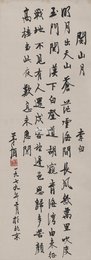 関山月 李白
明月出天山蒼茫雲海間長風幾萬里吹度
玉門關漢下白登道胡窺青海灣由来征
戰地不見有人還戍客望邊色思歸多苦顏
高樓當此夜歎息未應閑
一九七九年
月於北京